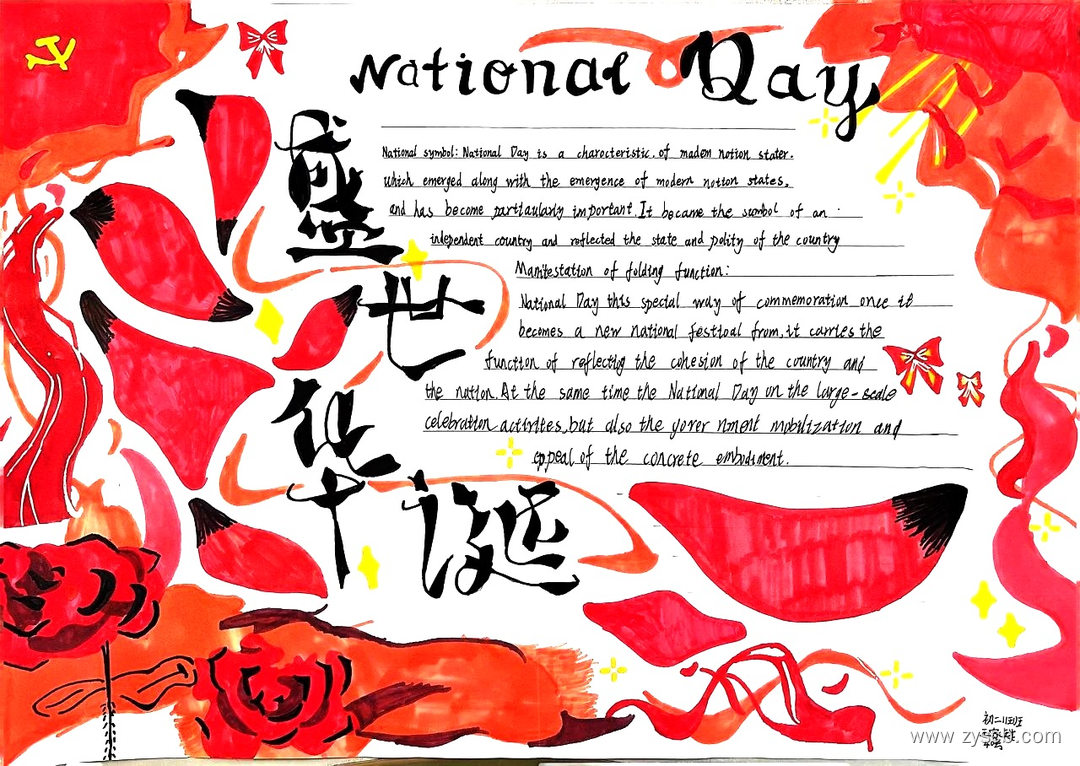 National Day
盛世华诞
National symbol: National Day is a charocteristic. of madem notion stater.
which emerged along with the emergence of modern notion states,
and has become partiaularly important. It became the sumbol of an
independent country and reflected the state and polity of the country
Manifestation of folding function:
National Day this special way of commemoration once it
becomes a new national festioal from, it carries the
function of reflecting the cohesion of the country and
the nation. At the same time the National Day on the large-scale
celebration activities, but also the gover nment mobilization and
appeal of the concrete embodiment.
初二11班
www.zyscb.com